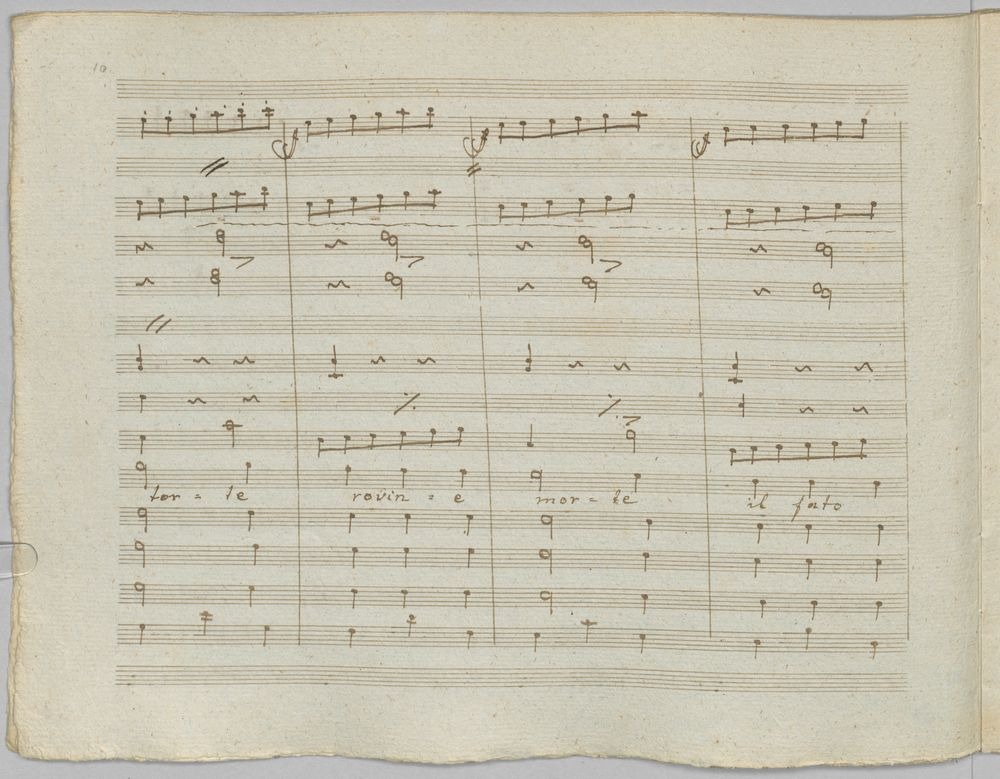 10
tor = te rovin = e mor = te il fato